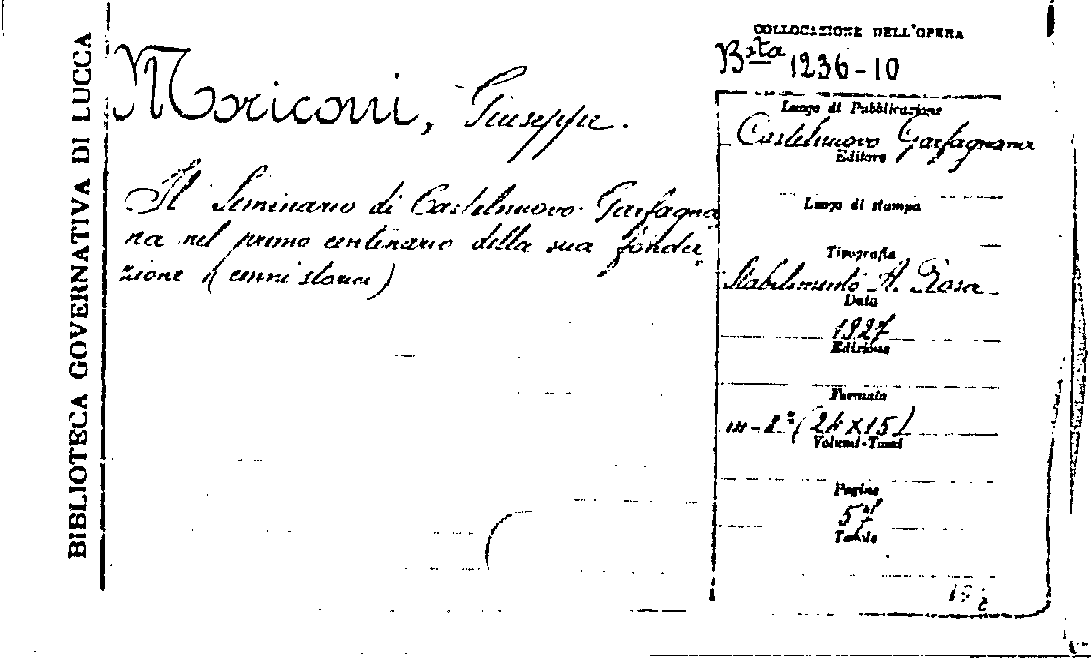 BIBLIOTECA GOVERNATIVA DI LUCCA
Moriconi, Giuseppe.
Il Seminario di Castelnuovo Garfagna
na nel primo centenario della sua fonda
zione (cenni storici)
COLLOCAZIONE DELL'OPERA
Bsta 1236-10
Luogo di Pubblicazione
Castelnuovo Garfagnana
Editore
Luogo di stampa
Tipografia
Stabilimento A. Rosa
Data
1927
Edizione
Formato
in-8° (24x15)
Volumi-Tomi
Pagine
57
Tavole